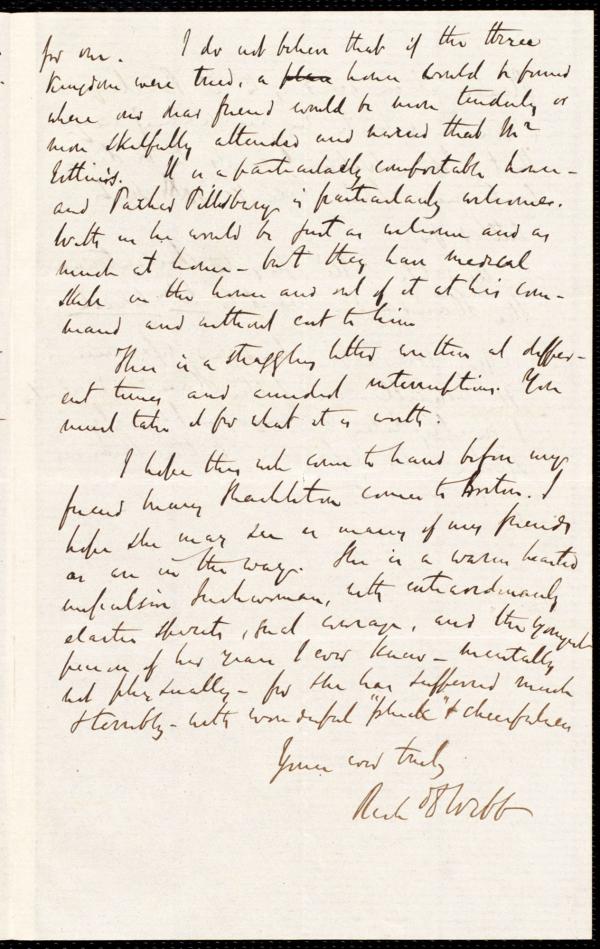 for me. I do not believe that if the three
kingdoms were tried, a place house would be found
where our dear friend would be more tenderly or
more skilfully attended and nursed that Mr
Estlin's. It is a particularly comfortable house –
and Parker Pillsbury is particularly welcome.
With us he would be just as welcome and as
much at home – but they have medical
skill in the house and out of it at his com-
mand and without cost to him
This is a straggling letter written at differ-
ent times and amidst interruptions. You
must take it for what it is worth.
I hope this will come to hand before my
friend Mary comes to Boston. I
hope she may see as many of my friends
as are in the way. She is a warm hearted
impulsive Irishwoman, with extraordinarily
elastic spirits, great courage, and the youngest
person of her years I ever knew – mentally
not physically – for she has suffered much
& terribly – with wonderful "pluck" & cheerfulness
Yours ever truly
Rich D Webb